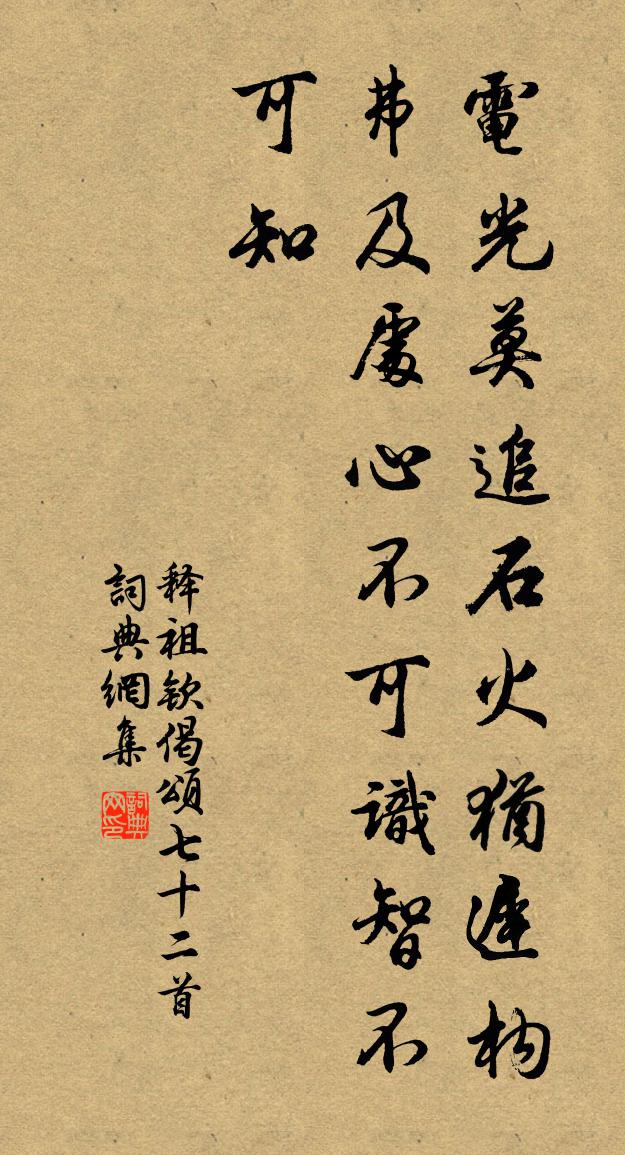 電光莫追石火猶遲构
弗及處心不可識智不
可知
释祖欽偈頌七十二首
詞典網集
詞典网印